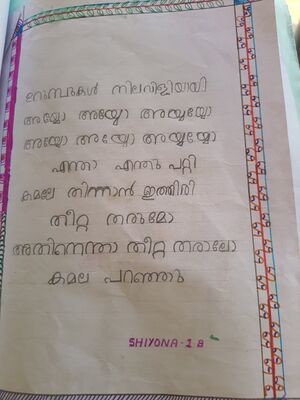 ഉറുമ്പുകൾ നിലവിളിയായി
അയ്യോ അയ്യോ അയ്യയ്യോ
അയ്യോ അയ്യോ അയ്യയ്യോ
എന്താ എന്തു പറ്റി
കമലേ തിന്നാൻ ഇത്തിരി
തീറ്റ തരുമോ
അതിനെന്താ തീറ്റ തരാലോ
കമല പറഞ്ഞു
SHIYONA-1 B